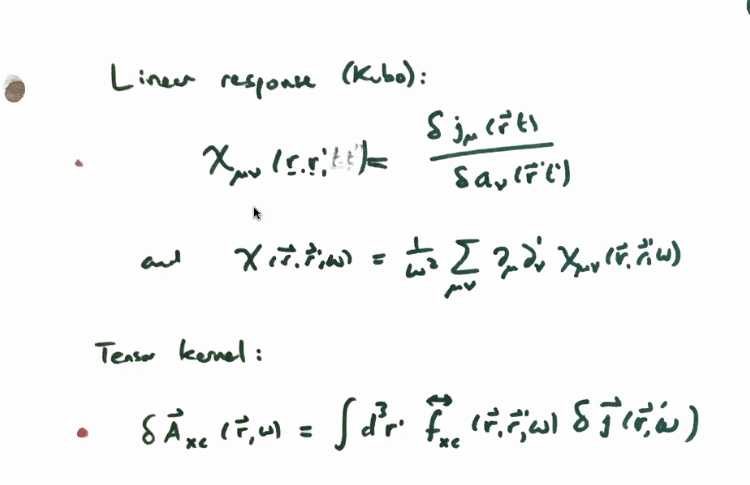 Linear response (Kubo):
χ_μν (r, r', t t') = δ j_μ (r⃗ t) / δ a_ν (r⃗' t')
and χ (r⃗, r⃗', ω) = 1/ω² ∑_μν ∂_μ ∂'_ν χ_μν (r⃗, r⃗', ω)
Tensor kernel:
• δ A⃗_xc (r⃗, ω) = ∫ d³r' f⃡_xc (r⃗, r⃗', ω) δ j⃗ (r⃗', ω)